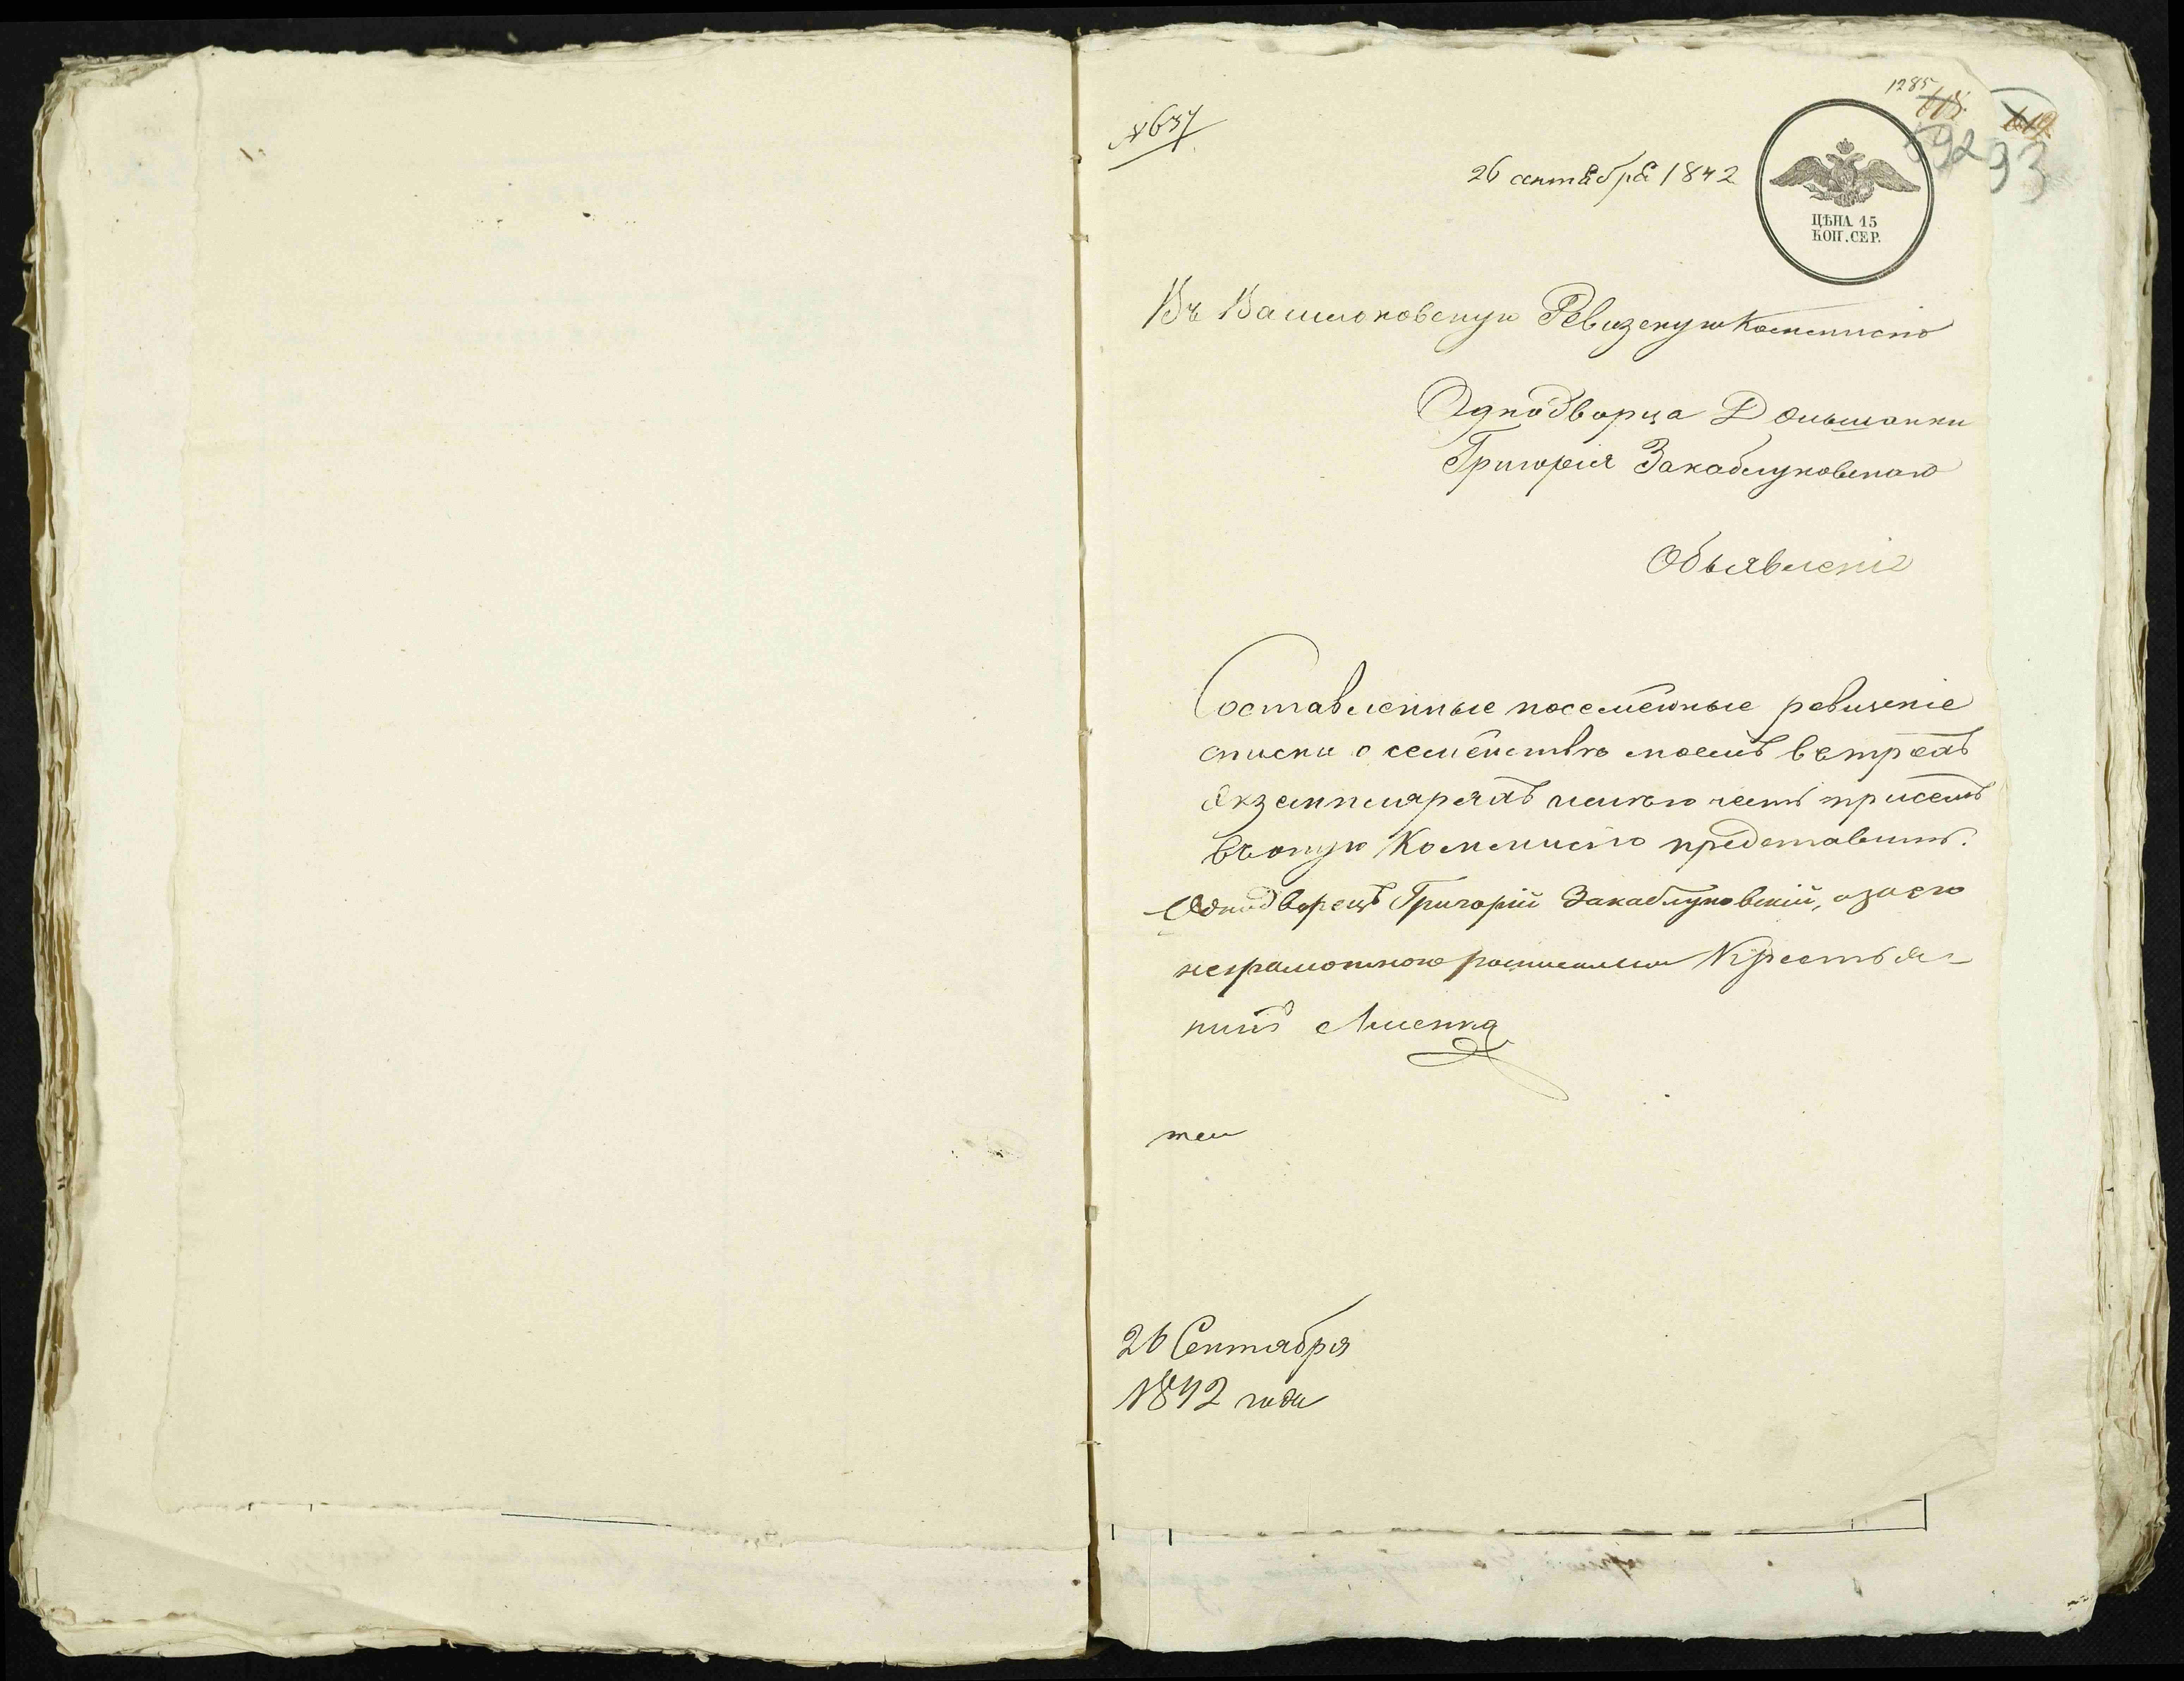 №637
1285
618.
619.
592
93
26 сентября 1842
ЦѢНА 15
КОП. СЕР.
Въ Васильковскую Ревизскую Коммисію
Однодворца Д Ольшанки
Григорія Закаблуковскаго
Объявленіе
Составленные посемейные ревизскіе
списки о семействѣ моемъ въ трехъ
экземплярахъ имѣю честь при семъ
въ оную Коммисію представить.
Однодворецъ Григорій Закаблуковскій, а за его
неграмотного росписался Крестья-
нинъ
26 Сентября
1842 года